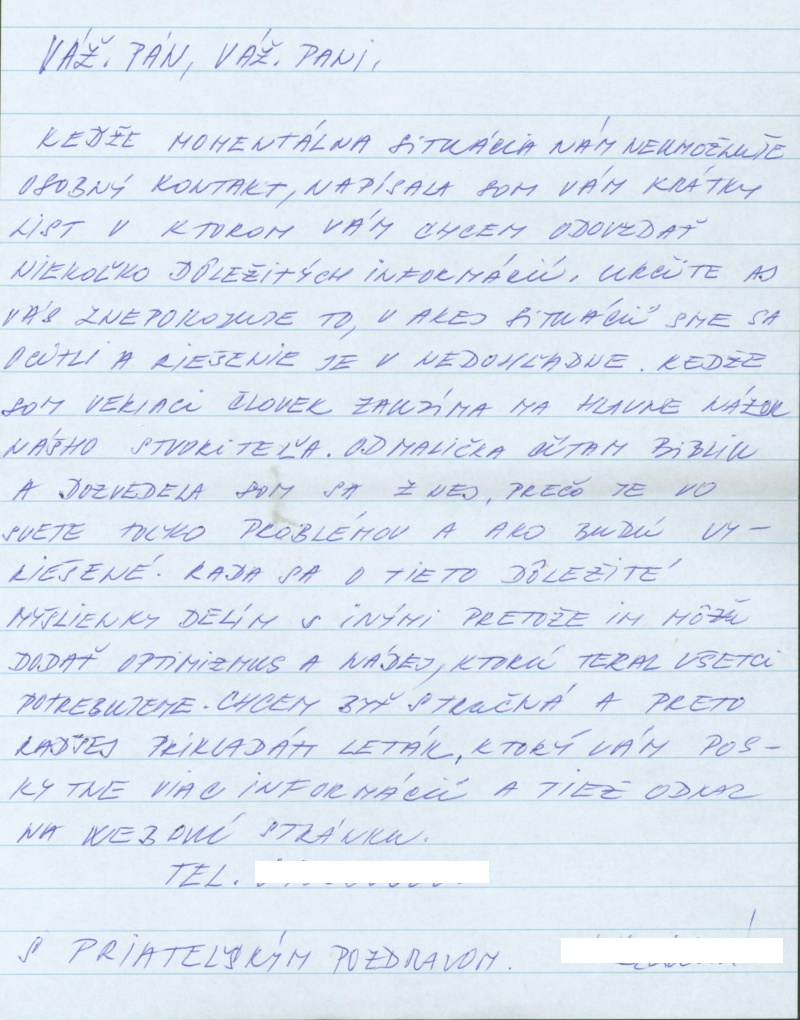 VÁŽ. PÁN, VÁŽ. PANI,
KEĎŽE MOMENTÁLNA SITUÁCIA NÁM NEUMOŽŇUJE
OSOBNÝ KONTAKT, NAPÍSALA SOM VÁM KRÁTKY
LIST V KTOROM VÁM CHCEM ODOVZDAŤ
NIEKOĽKO DÔLEŽITÝCH INFORMÁCIÍ. URČITE AJ
VÁS ZNEPOKOJUJE TO, V AKEJ SITUÁCIÍ SME SA
OCITLI A RIEŠENIE JE V NEDOHĽADNE. KEĎŽE
SOM VERIACI ČLOVEK ZAUJÍMA MA HLAVNE NÁZOR
NÁŠHO STVORITEĽA. OD MALIČKA ČÍTAM BIBLIU
A DOZVEDELA SOM SA Z NEJ, PREČO JE VO
SVETE TOĽKO PROBLÉMOV A AKO BUDÚ VY-
RIEŠENÉ. RADA SA O TIETO DÔLEŽITÉ
MYŠLIENKY DELÍM S INÝMI PRETOŽE IM MÔŽU
DODAŤ OPTIMIZMUS A NÁDEJ, KTORÚ TERAZ VŠETCI
POTREBUJEME. CHCEM BYŤ STRUČNÁ A PRETO
RADŠEJ PRIKLADÁM LETÁK, KTORÝ VÁM POS-
KYTNE VIAC INFORMÁCIÍ A TIEŽ ODKAZ
NA WEBOVÚ STRÁNKU.
TEL.
S PRIATEĽSKÝM POZDRAVOM.